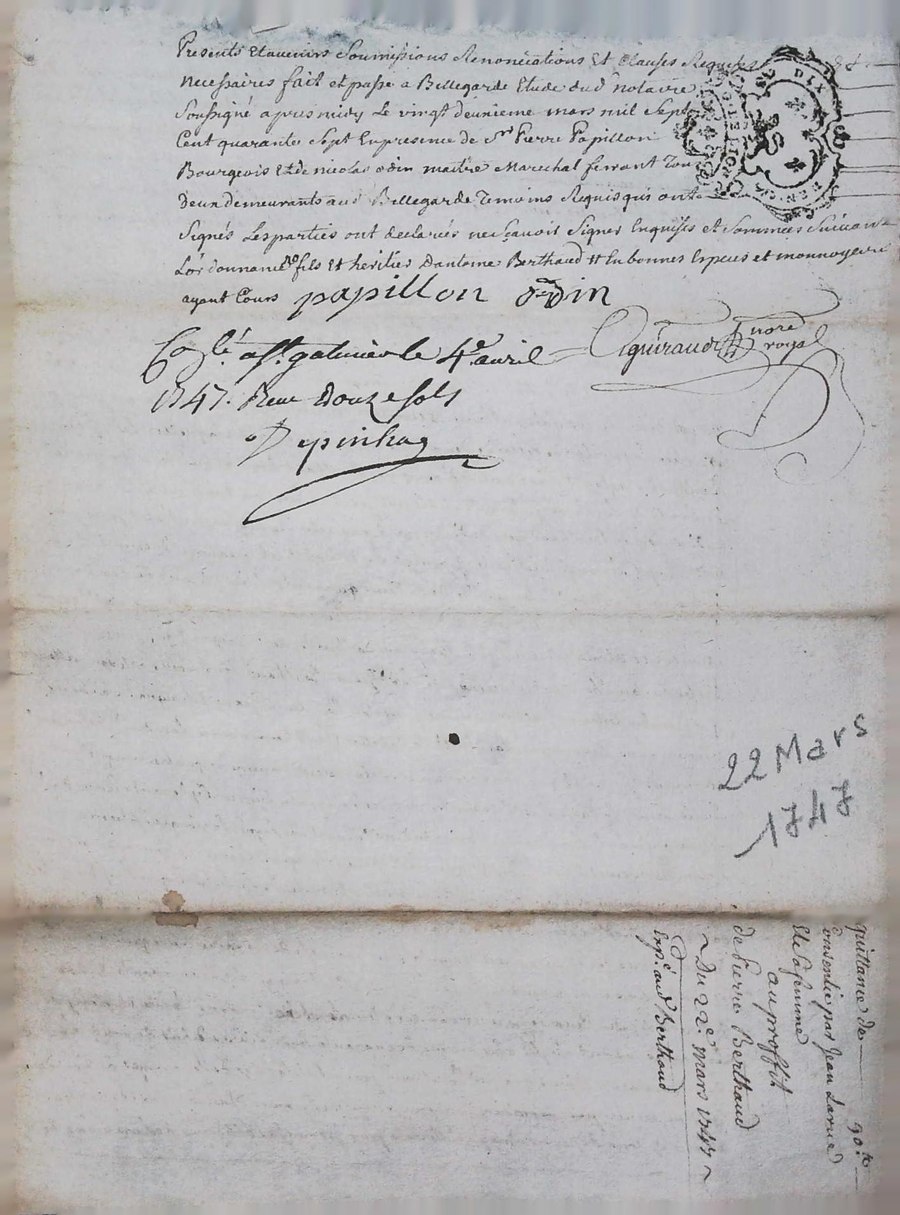 Presents Et avenirs Soumissions Renonciations Et Clauses Requises Et
necessaires fait et passé a Bellegarde Etude dud. notaire
Soussigné apres midy Le vingt deuxieme mars mil Sept
Cent quarante Sept En presence de Sr Pierre Papillon
Bourgeois Et de nicolas odin maitre Marechal ferrant Tous
deux demeurants aud. Bellegarde Temoins Requis qui ont
Signés Les parties ont declarées ne sçavoir Signer Enquises et Sommées Suivant
L'ordonnance fils Et heritier D'antoine Berthaud En bonnes Especes et monnoyes
ayant Cours papillon odin
DIX
REN
Guiraud nore royal
Conlé a St galmier le 4e avril
1747. Reçu Douze sols
Depinhac
22 Mars
1747
quittance de 90 lt
Consentie par Jean Larue
Et Sa femme
au proffit
de Pierre Berthaud
Du 22e mars 1747
Exp.é aud. Berthaud